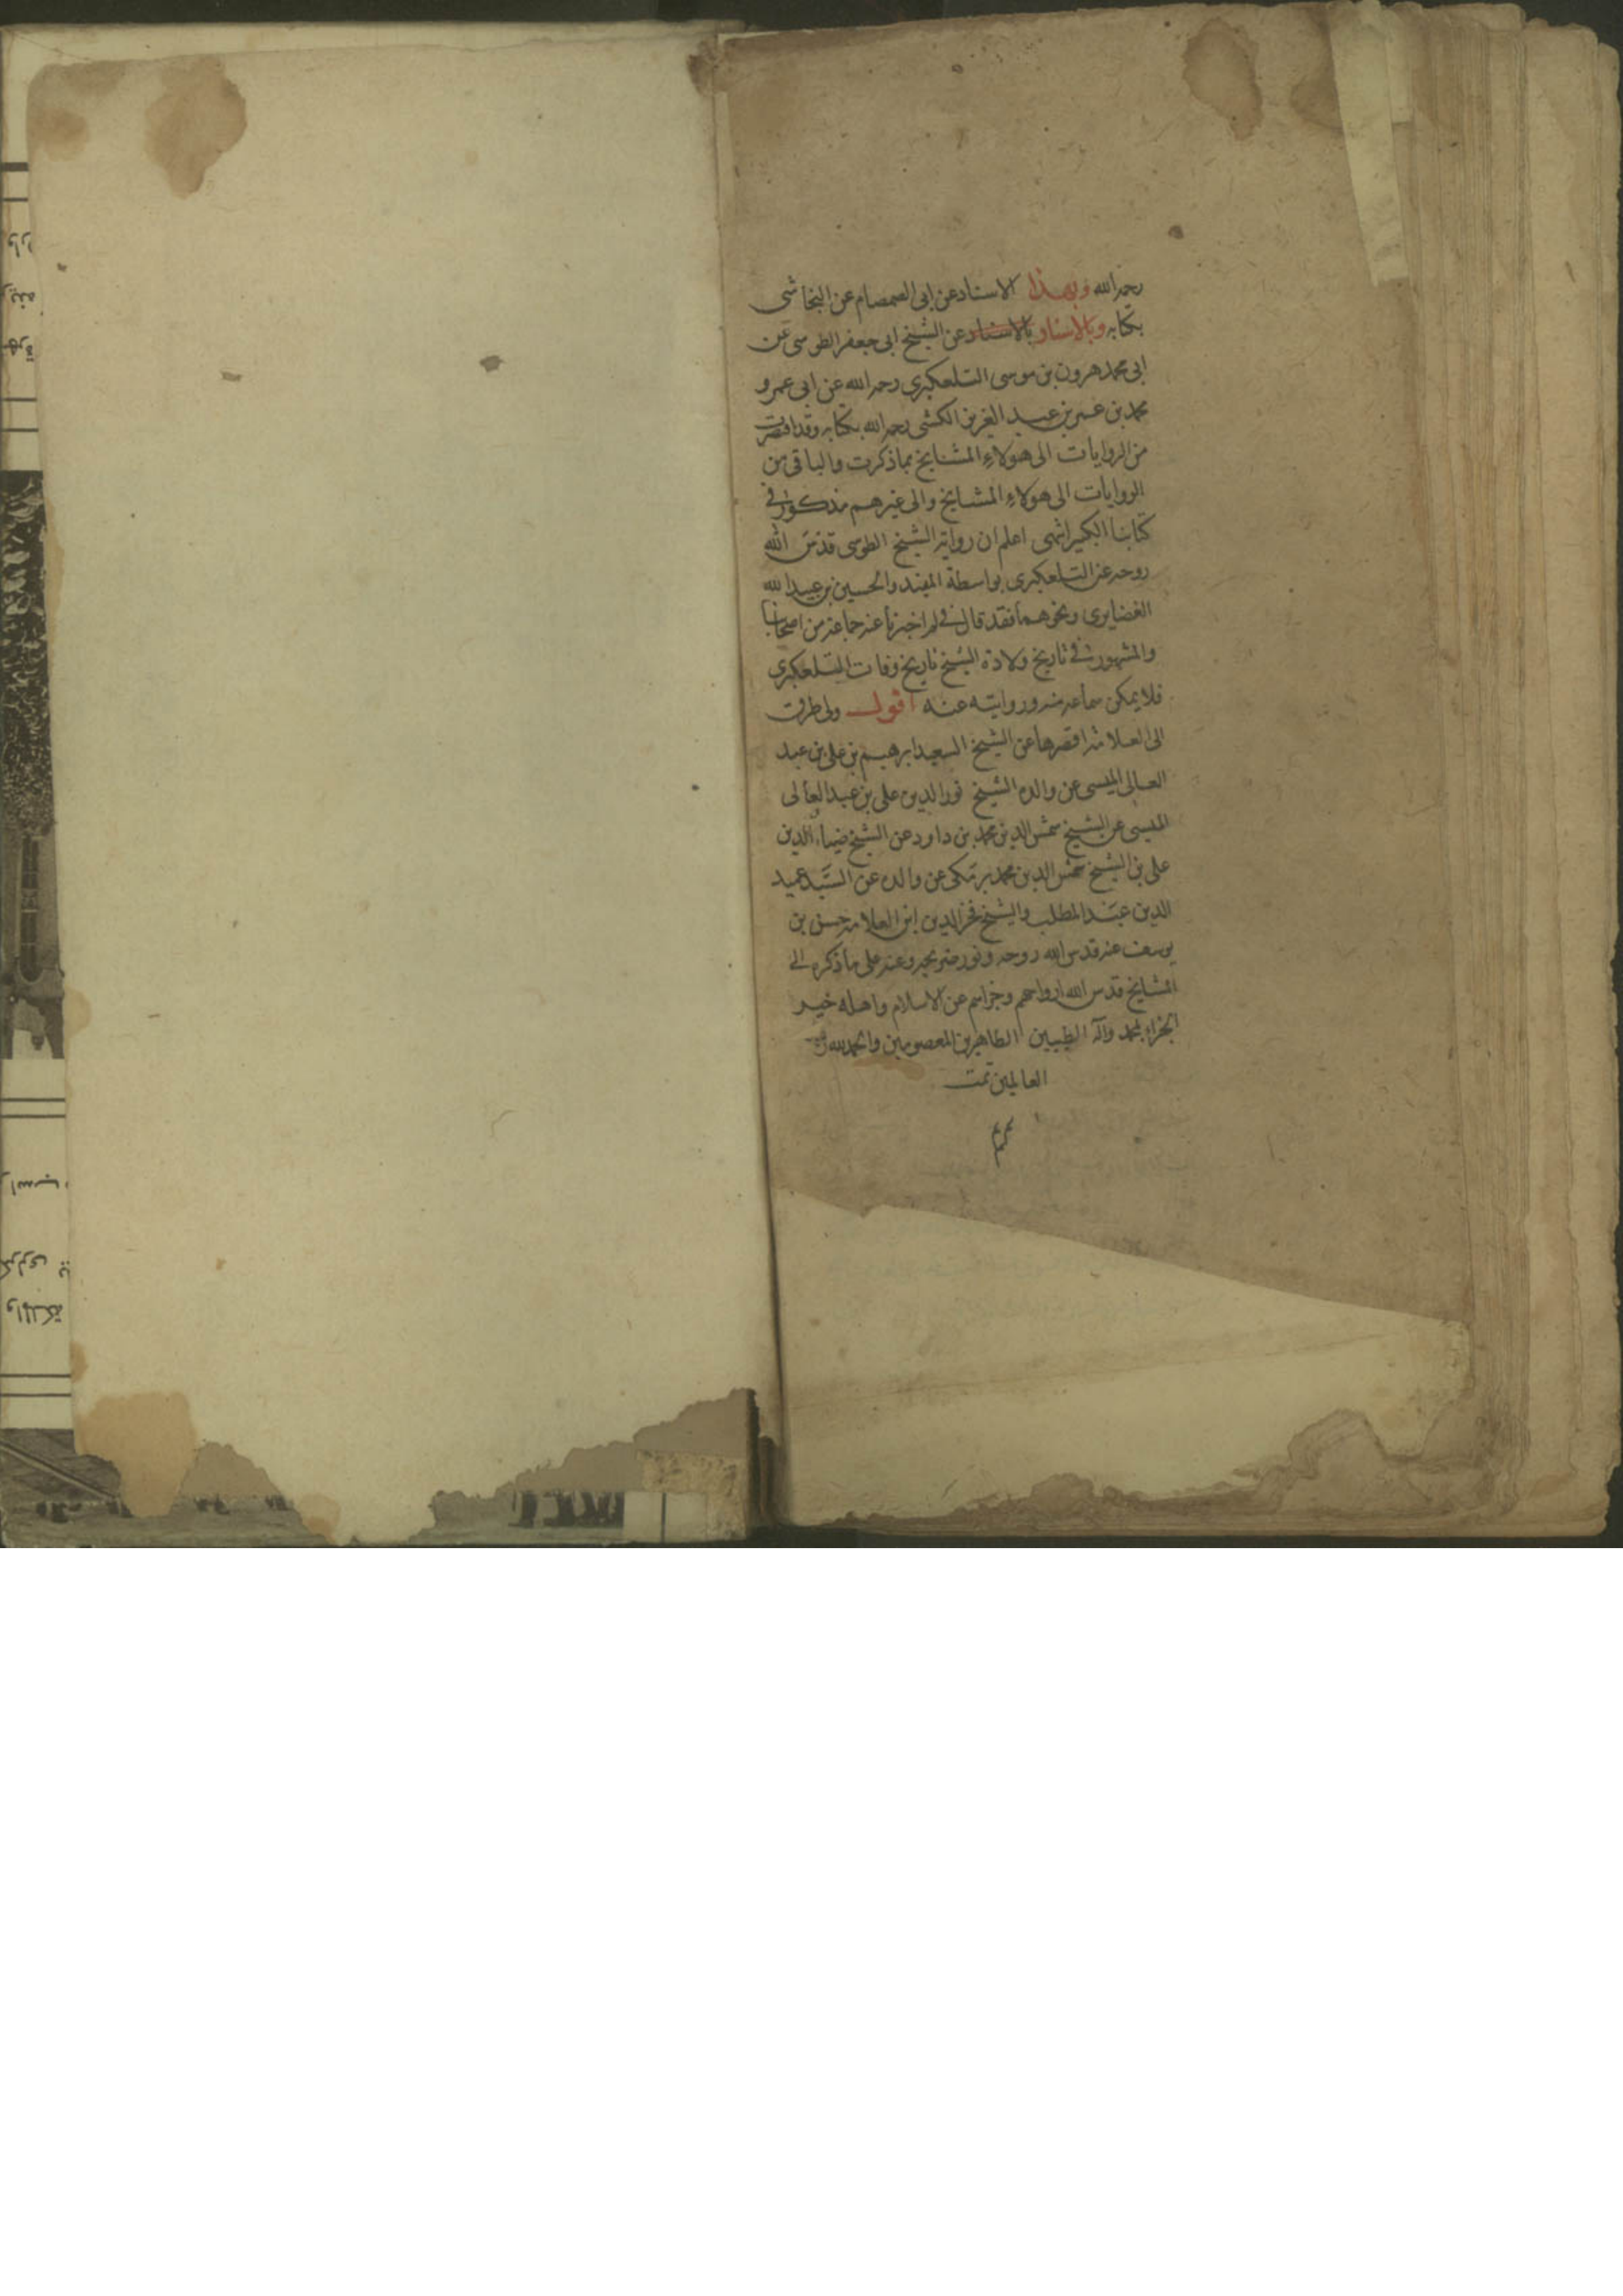 رحمه الله وبهذا الاسناد عن ابى الصمصام عن النجاشى
بكتابه وبالاسناد بالاسناد عن الشيخ ابى جعفر الطوسى عن
ابى محمد هرون بن موسى التلعكبرى رحمه الله عن ابى عمرو
محمد بن عمر بن عبد العزيز الكشى رحمه الله بكتابه وقد اقتصرت
من الروايات الى هولاء المشايخ بما ذكرت والباقى من
الروايات الى هولاء المشايخ والى غيرهم مذكور فى
كتابنا الكبير انتهى اعلم ان رواية الشيخ الطوسى قدس الله
روحه عن التلعكبرى بواسطة المفيد والحسين بن عبيد الله
الغضايرى ونحوهما فقد قال فى لم اخبرنا عنه جماعة من اصحابنا
والمشهور فى تاريخ ولادة الشيخ تاريخ وفات التلعكبرى
فلا يمكن سماعه منه وروايته عنه اقول ولى طرق
الى العلامة اقصرها عن الشيخ السعيد ابرهيم بن على بن عبد
العالى الميسى عن والده الشيخ نور الدين على بن عبد العالى
الميسى عن الشيخ شمس الدين محمد بن داود عن الشيخ ضياء الدين
على بن الشيخ شمس الدين محمد بن مكى عن والده عن السيد عميد
الدين عبد المطلب والشيخ فخر الدين ابن العلامه حسن بن
يوسف عنه قدس الله روحه ونور ضريحه وعنه على ما ذكره الى
المشايخ قدس الله ارواحهم وجزاهم عن الاسلام واهله خير
الجزاء بمحمد وآله الطيبين الطاهرين المعصومين والحمد لله رب
العالمين تمت